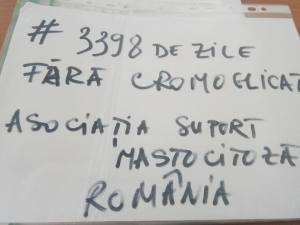 # 3398 DE ZILE
FĂRĂ CROMOGLICAT
ASOCIAȚIA SUPORT
MASTOCITOZĂ
ROMÂNIA